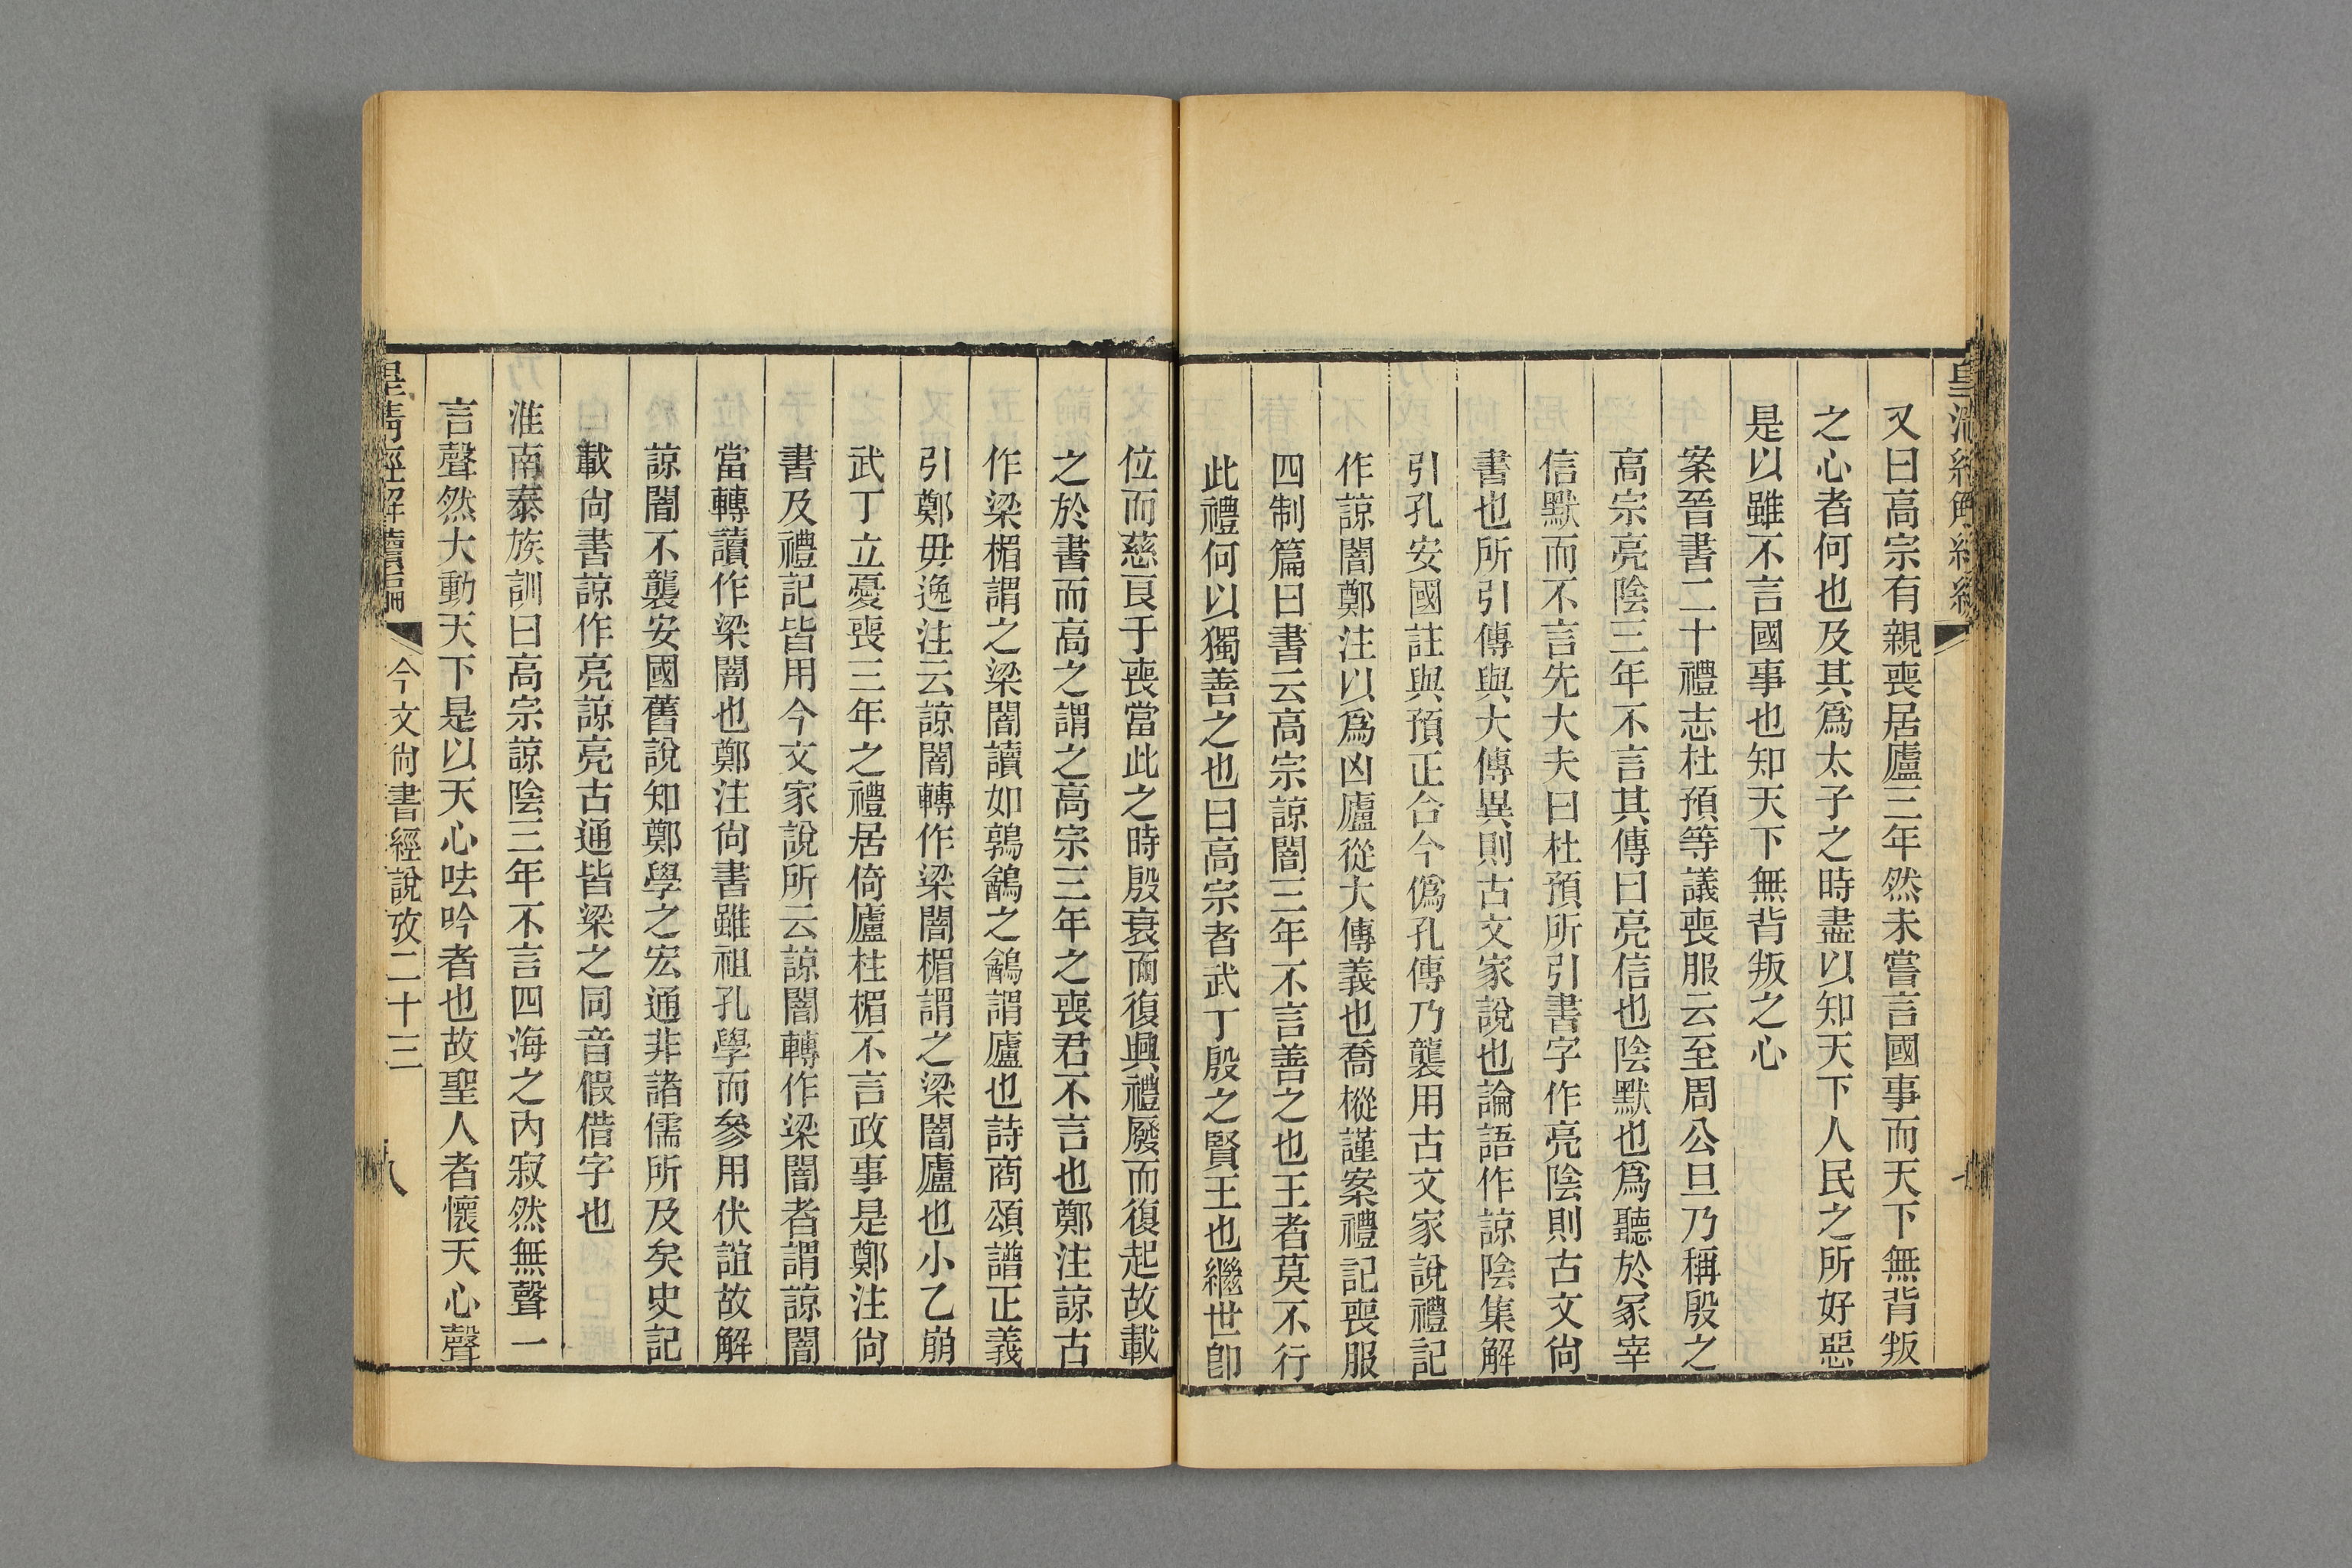 又曰高宗有親喪居廬三年然未嘗言國事而天下無背叛
之心者何也及其爲太子之時盡以知天下人民之所好惡
是以雖不言國事也知天下無背叛之心
案晉書二十禮志杜預等議喪服云至周公旦乃稱殷之
高宗亮陰三年不言其傳曰亮信也陰默也爲聽於冢宰
信默而不言先大夫曰杜預所引書字作亮陰則古文尙
書也所引傳與大傳異則古文家說也論語作諒陰集解
引孔安國註與預正合今僞孔傳乃襲用古文家說禮記
作諒闇鄭注以爲凶廬從大傳義也喬樅謹案禮記喪服
四制篇曰書云高宗諒闇三年不言善之也王者莫不行
此禮何以獨善之也曰高宗者武丁殷之賢王也繼世卽
位而慈良于喪當此之時殷衰而復興禮廢而復起故載
之於書而高之謂之高宗三年之喪君不言也鄭注諒古
作梁楣謂之梁闇讀如鶉鷂之鷂謂廬也詩商頌譜正義
引鄭毋逸注云諒闇轉作梁闇楣謂之梁闇廬也小乙崩
武丁立憂喪三年之禮居倚廬柱楣不言政事是鄭注尙
書及禮記皆用今文家說所云諒闇轉作梁闇者謂諒闇
當轉讀作梁闇也鄭注尙書雖祖孔學而參用伏誼故解
諒闇不襲安國舊說知鄭學之宏通非諸儒所及矣史記
載尙書諒作亮諒亮古通皆梁之同音假借字也
淮南泰族訓曰高宗諒陰三年不言四海之內寂然無聲一
言聲然大動天下是以天心呿吟者也故聖人者懷天心聲
皇清經解續編 今文尙書經說攷二十三 八